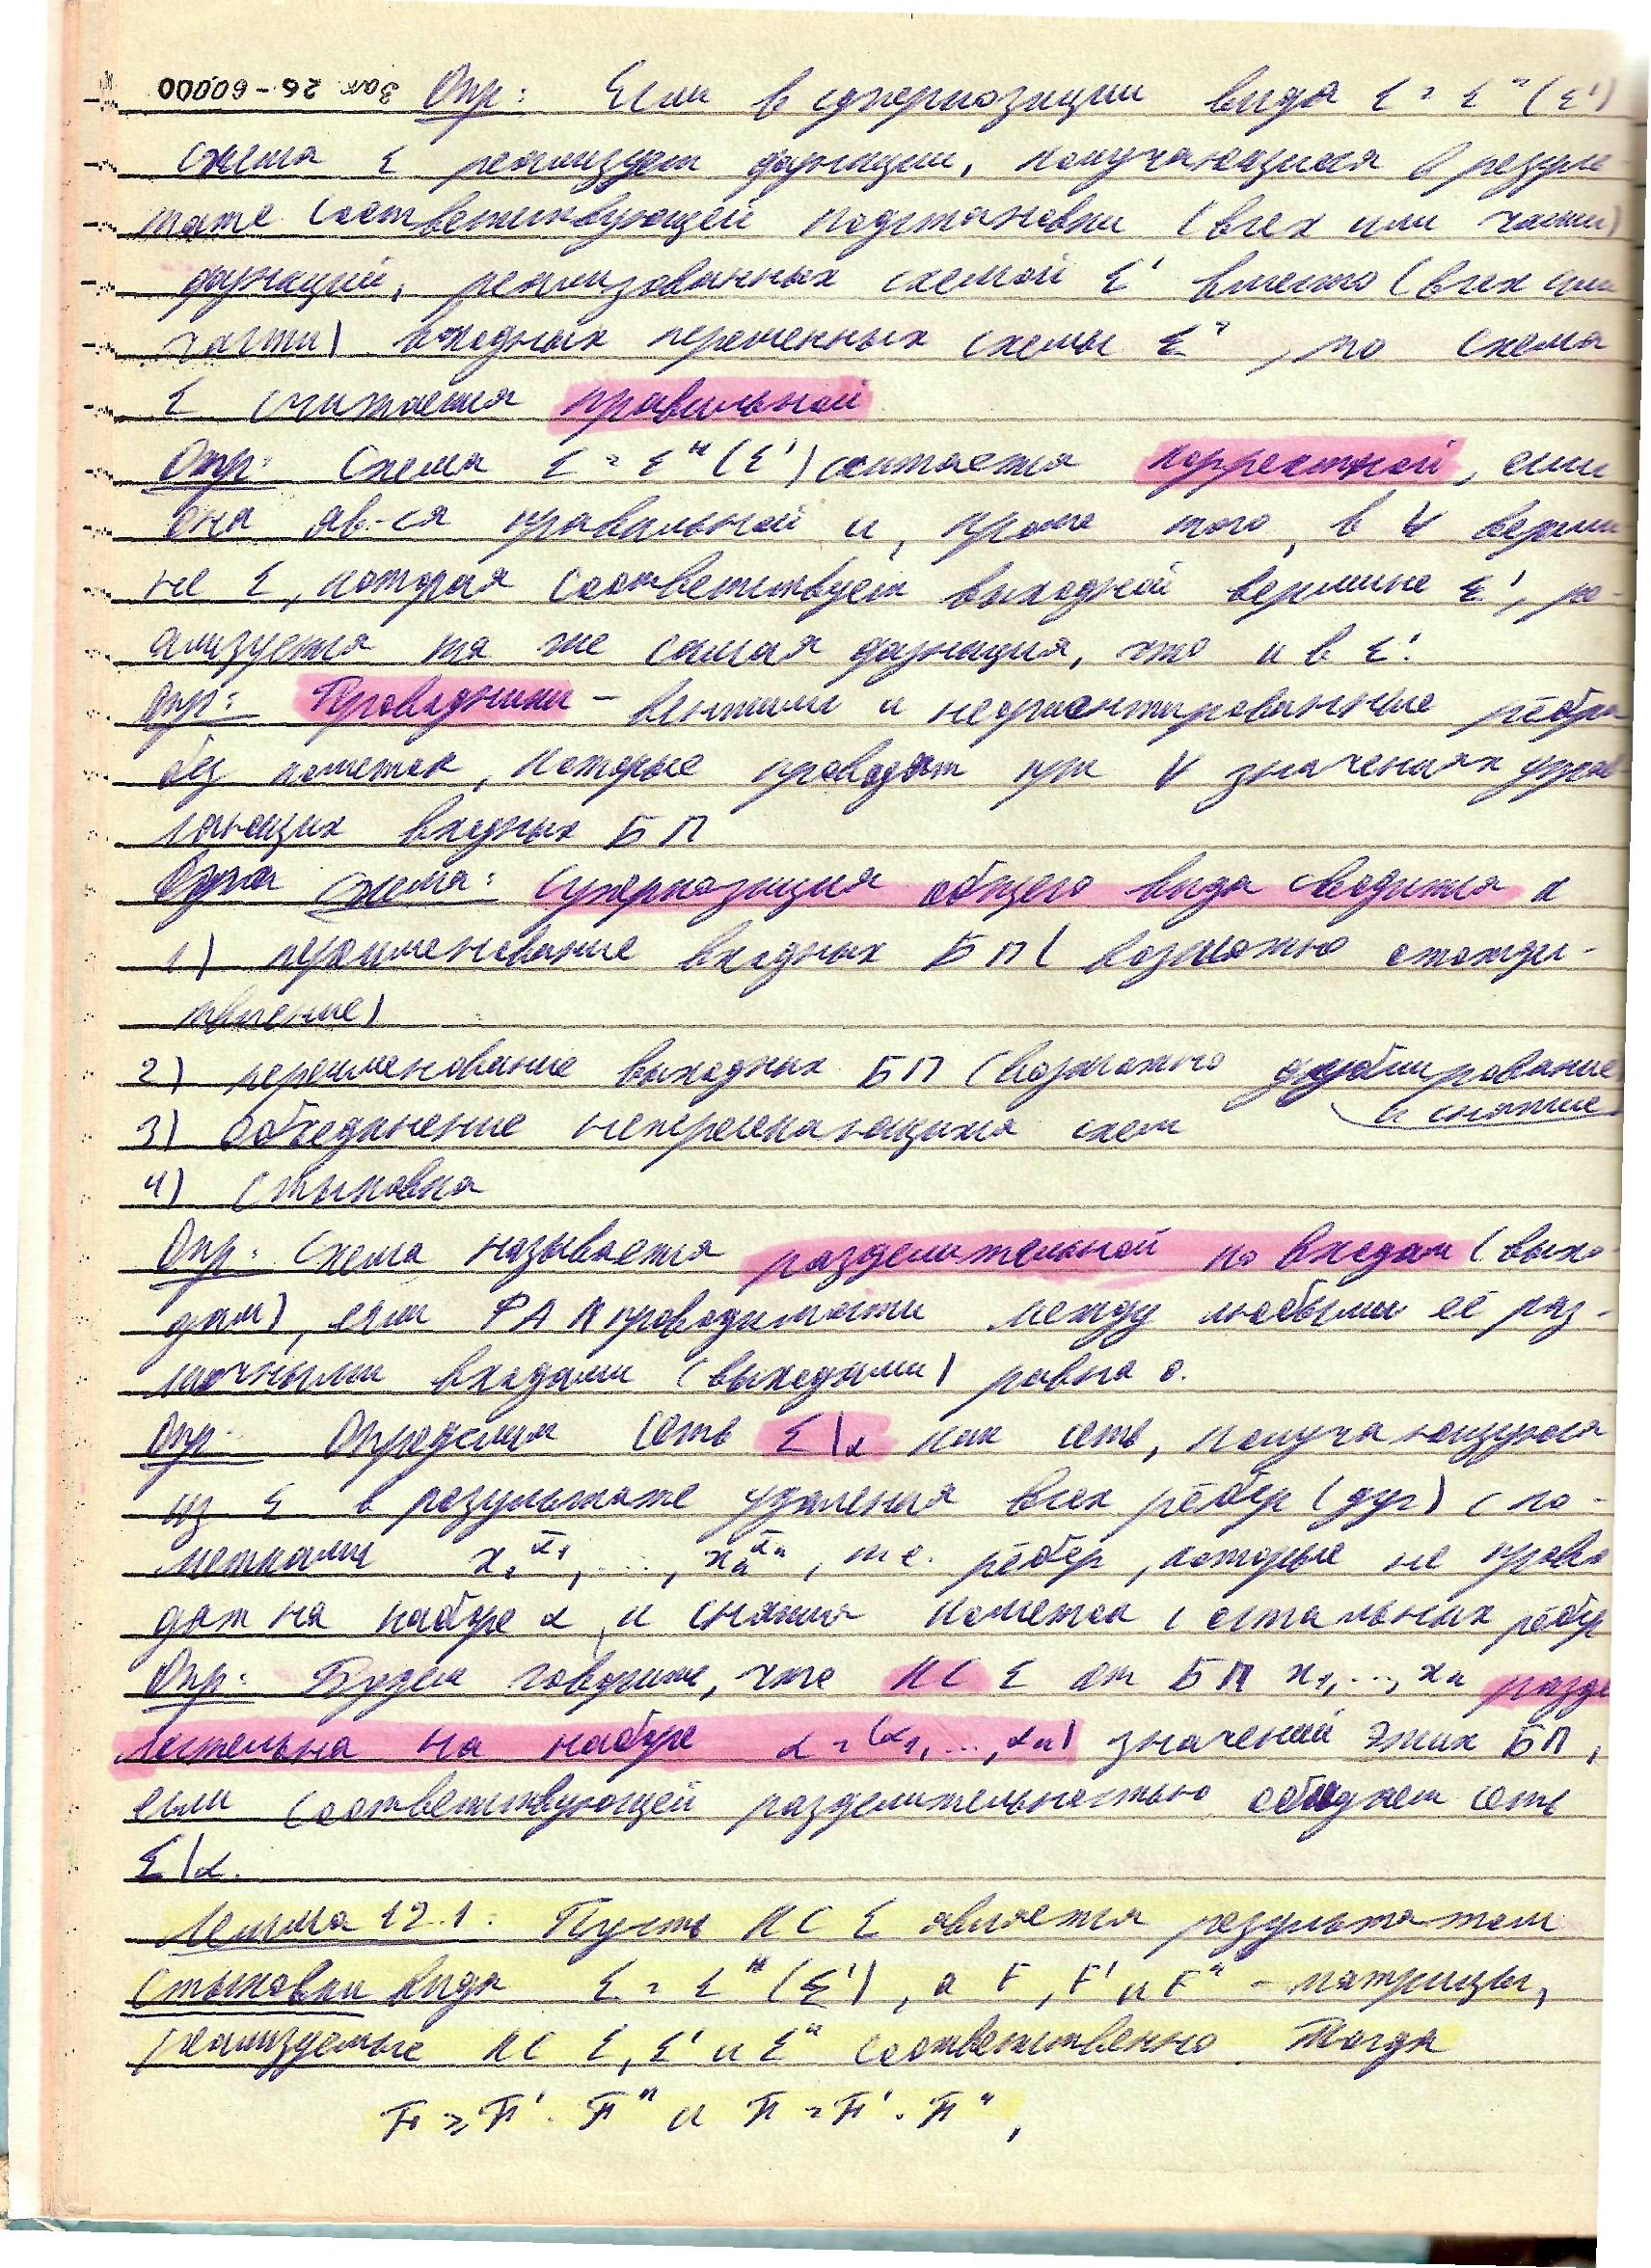 Зак 26-60000 Опр: Если в суперпозиции вида Σ = Σ"(Σ')
схема Σ реализует функции, получающиеся в резуль
тате соответствующей подстановки (всех или части)
функций, реализованных схемой Σ' вместо (всех или
части) входных переменных схемы Σ", то схема
Σ считается правильной
Опр: Схема Σ = Σ"(Σ') считается корректной, если
она яв-ся правильной и, кроме того, в ∀ верши
не Σ, которая соответствует выходной вершине Σ', ре-
ализуется та же самая функция, что и в Σ'.
Опр: Проводники – вентили и неориентированные рёбра
без пометок, которые проводят при ∀ значениях управ
ляющих входных БП
схема: суперпозиция общего вида сводится к
1) переименование входных БП (возможно отождес-
твление)
2) переименование выходных БП (возможно дублирование
и снятие
3) объединение непересекающихся схем
4) стыковка
Опр: Схема называется разделительной по входам (выхо-
дам), если ФАЛ проводимости между любыми её раз-
личными входами (выходами) равна 0.
Опр: Определим сеть Σ|α как сеть, получающуюся
из Σ в результате удаления всех рёбер (дуг) с по-
метками x₁^ᾱ₁, ..., xₙ^ᾱₙ, т.е. рёбер, которые не прово
дят на наборе α, и снятия пометок с остальных рёбер
Опр: Будем говорить, что КС Σ от БП x₁, ..., xₙ разде
лительна на наборе α = (α₁, ..., αₙ) значений этих БП,
если соответствующей разделительностью обладает сеть
Σ|α.
Лемма 12.1: Пусть КС Σ является результатом
стыковки вида Σ = Σ"(Σ'), а F, F' и F" – матрицы,
реализуемые КС Σ, Σ' и Σ" соответственно. Тогда
F ≥ F' · F" и F = F' · F",